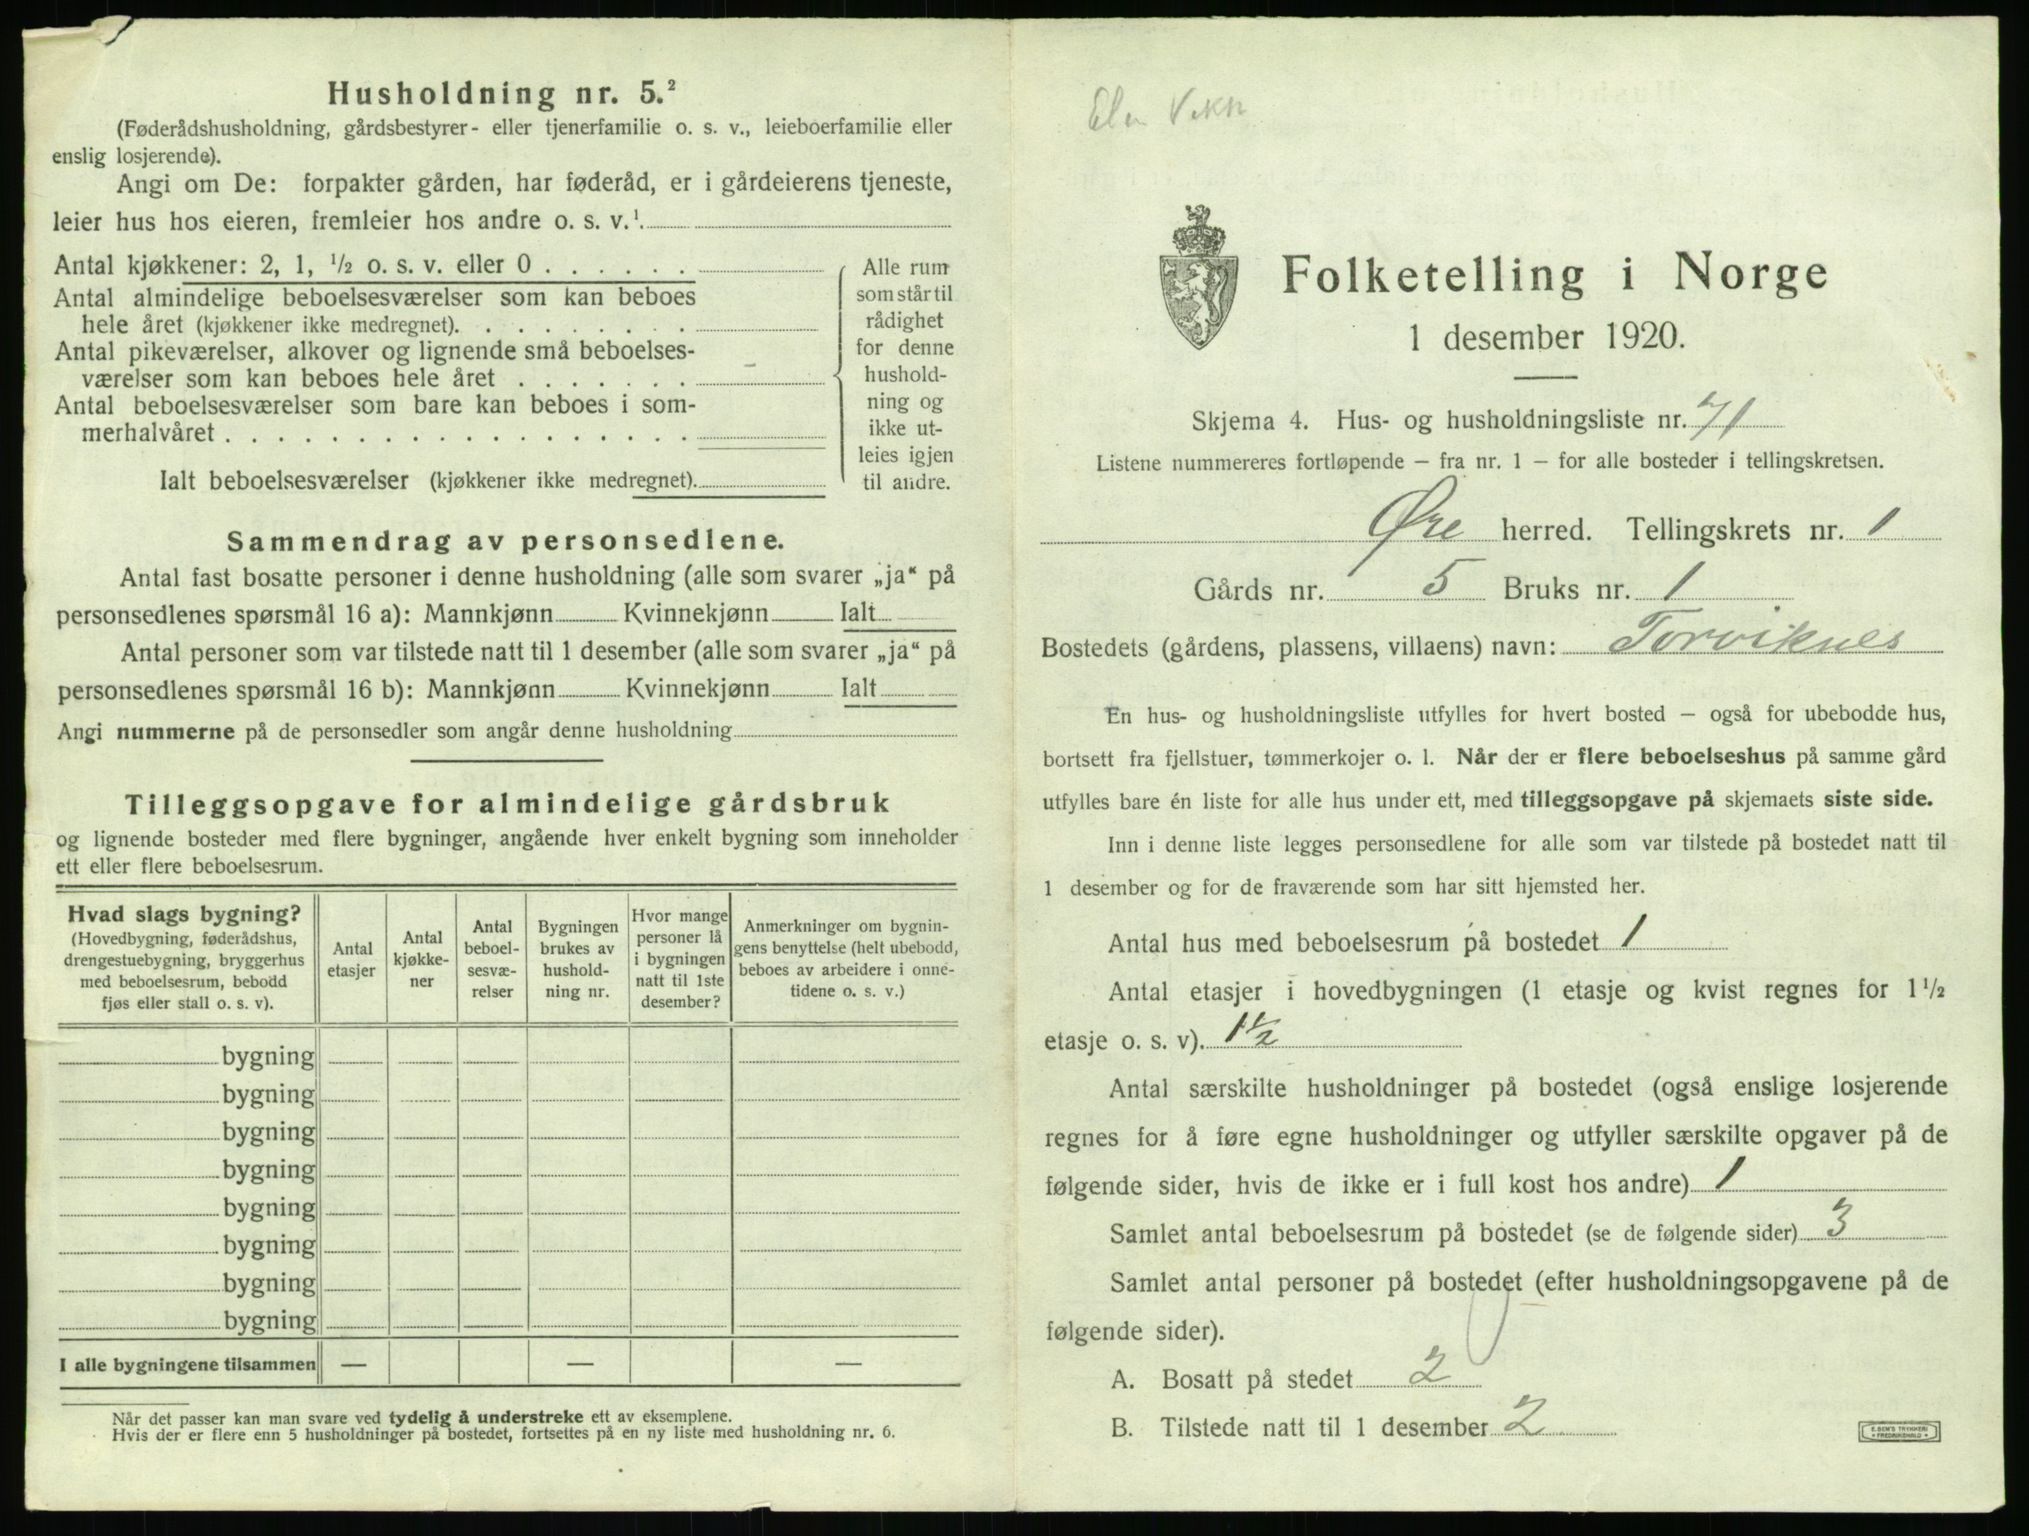 Husholdning nr. 5.²
(Føderådshusholdning, gårdsbestyrer- eller tjenerfamilie o. s. v., leieboerfamilie eller
enslig losjerende).
Angi om De: forpakter gården, har føderåd, er i gårdeierens tjeneste,
leier hus hos eieren, fremleier hos andre o. s. v.¹
Antal kjøkkener: 2, 1, ½ o. s. v. eller 0 . . . . . .
Antal almindelige beboelsesværelser som kan beboes
hele året (kjøkkener ikke medregnet). . . . . . . . .
Antal pikeværelser, alkover og lignende små beboelses-
værelser som kan beboes hele året . . . . . . .
Antal beboelsesværelser som bare kan beboes i som-
merhalvåret . . . . . . . . . . . . . . . . . .
Ialt beboelsesværelser (kjøkkener ikke medregnet).
Alle rum
som står til
rådighet
for denne
hushold-
ning og
ikke ut-
leies igjen
til andre.
Sammendrag av personsedlene.
Antal fast bosatte personer i denne husholdning (alle som svarer „ja“ på
personsedlenes spørsmål 16 a): Mannkjønn Kvinnekjønn Ialt
Antal personer som var tilstede natt til 1 desember (alle som svarer „ja“ på
personsedlenes spørsmål 16 b): Mannkjønn Kvinnekjønn Ialt
Angi nummerne på de personsedler som angår denne husholdning
Tilleggsopgave for almindelige gårdsbruk
og lignende bosteder med flere bygninger, angående hver enkelt bygning som inneholder
ett eller flere beboelsesrum.
Hvad slags bygning?
(Hovedbygning, føderådshus,
drengestuebygning, bryggerhus
med beboelsesrum, bebodd
fjøs eller stall o. s. v).
Antal
etasjer
Antal
kjøkke-
ner
Antal
beboel-
sesvæ-
relser
Bygningen
brukes av
hushold-
ning nr.
Hvor mange
personer lå
i bygningen
natt til 1ste
desember?
Anmerkninger om bygnin-
gens benyttelse (helt ubebodd,
beboes av arbeidere i onne-
tidene o. s. v.)
bygning
bygning
bygning
bygning
bygning
bygning
bygning
bygning
I alle bygningene tilsammen — — —
Når det passer kan man svare ved tydelig å understreke ett av eksemplene.
Hvis der er flere enn 5 husholdninger på bostedet, fortsettes på en ny liste med husholdning nr. 6.
Folketelling i Norge
1 desember 1920.
Skjema 4. Hus- og husholdningsliste nr. 71
Listene nummereres fortløpende — fra nr. 1 — for alle bosteder i tellingskretsen.
Øre herred. Tellingskrets nr. 1
Gårds nr. 5 Bruks nr. 1
Bostedets (gårdens, plassens, villaens) navn: Torviknes
En hus- og husholdningsliste utfylles for hvert bosted — også for ubebodde hus,
bortsett fra fjellstuer, tømmerkojer o. l. Når der er flere beboelseshus på samme gård
utfylles bare én liste for alle hus under ett, med tilleggsopgave på skjemaets siste side.
Inn i denne liste legges personsedlene for alle som var tilstede på bostedet natt til
1 desember og for de fraværende som har sitt hjemsted her.
Antal hus med beboelsesrum på bostedet 1
Antal etasjer i hovedbygningen (1 etasje og kvist regnes for 1½
etasje o. s. v). 1½
Antal særskilte husholdninger på bostedet (også enslige losjerende
regnes for å føre egne husholdninger og utfyller særskilte opgaver på de
følgende sider, hvis de ikke er i full kost hos andre) 1
Samlet antal beboelsesrum på bostedet (se de følgende sider) 3
Samlet antal personer på bostedet (efter husholdningsopgavene på de
følgende sider).
A. Bosatt på stedet 2
B. Tilstede natt til 1 desember 2
E. SEM'S TRYKKERI
FREDRIKSHALD